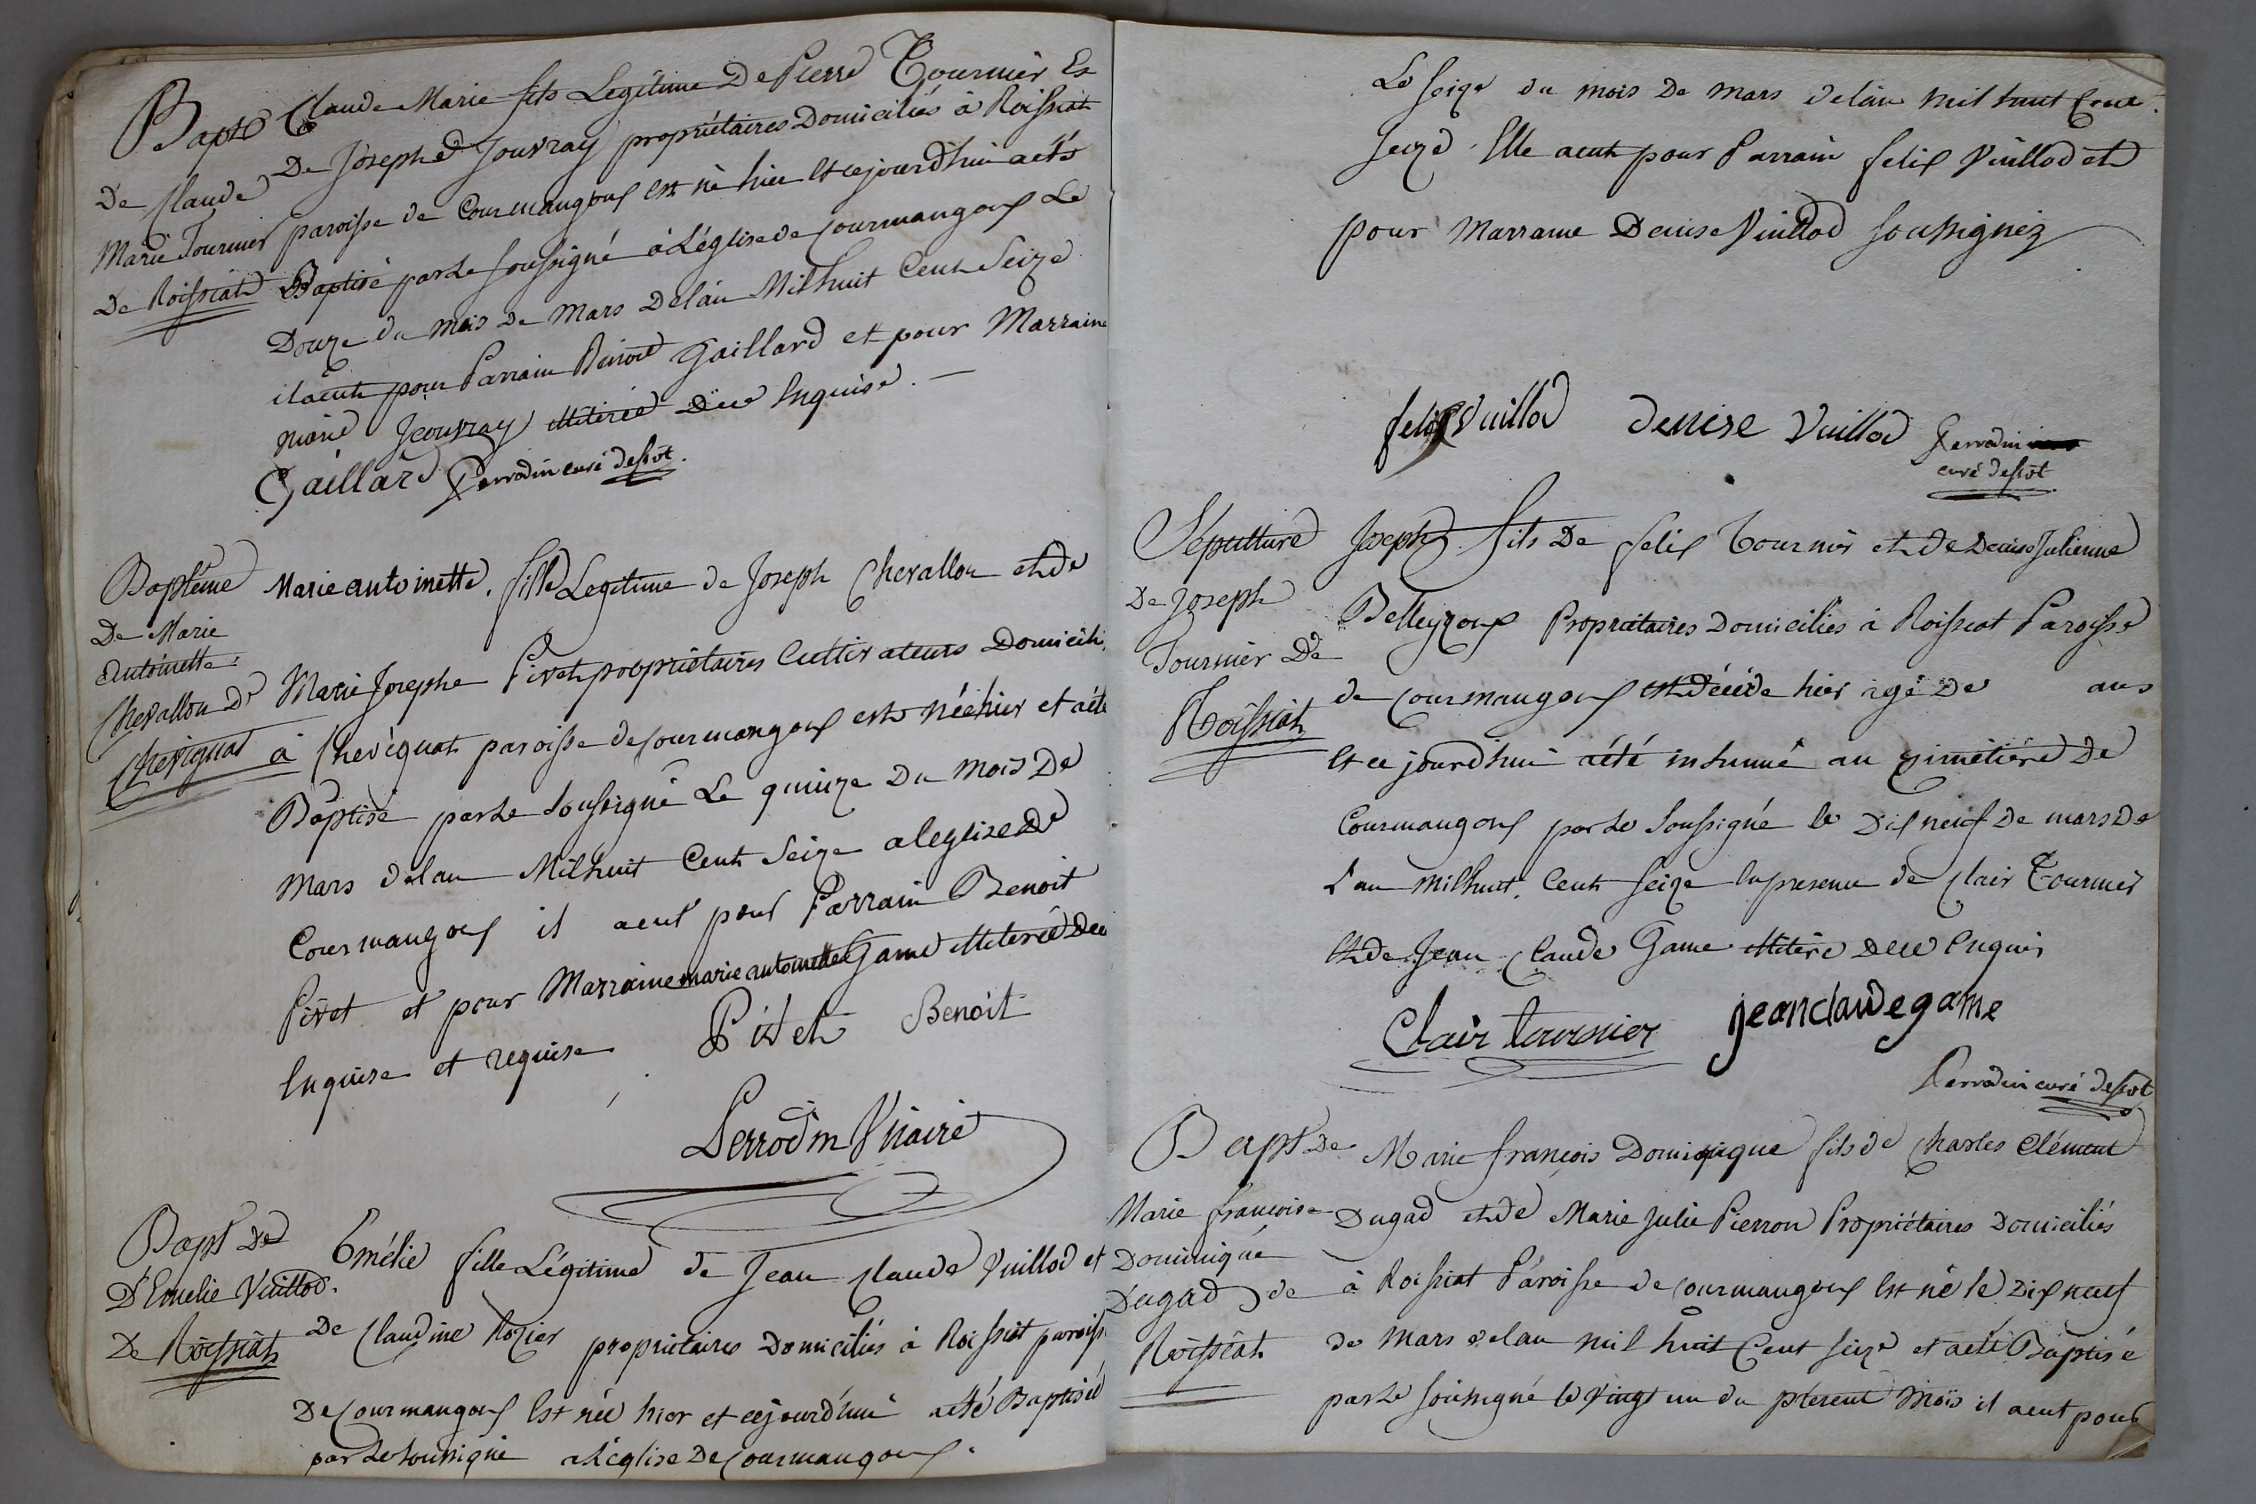 Bapt Claude Marie fils Legitime De Pierre Tournier Et
De Claude De Josephe Jouvray propriétaires Domiciliés à Roissiat
Marie Tournier paroisse de Courmangoux est né hier et cejourd'hui aété
De Roissiat Baptisé par Le soussigné à L'église de Courmangoux Le
Douze du mois de Mars De l'an Mil huit Cent Seize
il a eut pour Parrain Benoit Gaillard et pour Marraine
marie Jeouvray illitérée Due Enquise.
Gaillard Perrodin curé desst.
Baptême Marie antoinette, fille Legitime de Joseph Chevallon et de
De Marie
Antoinette Marie Josephe Pivet propriétaires Cultivateurs Domicili
Chevallon De
Chevignat à Chevignat paroisse de Courmangoux est née hier et aété
Baptisé par Le soussigné Le quinze Du Mois De
Mars de lan Mil huit Cent Seize a leglise De
Courmangoux il a eut pour Parrain Benoit
Pivet et pour Marraine marie antoinette Game illiterée Due
Enquise et requise Pivet Benoit
Perrodin Vicaire
Bapt De Emélie fille Légitime de Jean Claude Vuillod et
D'Emelie Vuillod.
De Roissiat De Claudine Rozier propriétaires Domiciliés à Roissiat paroiss
De Courmangoux Est née hier et cejourd'hui aété Baptisée
par Le soussigné a L'église De Courmangoux.
Le seize du mois De mars de lan mil huit Cent
seize. Elle a eut pour Parrain felix Vuillod et
pour Marrame Denise Vuillod soussignez
felix Vuillod Denise Vuillod Perrodin
curé desst
Sépulture Joseph fils De felix Tournier et de Denise Julienne
De Joseph
Tournier De Belleyzoux Propriétaires Domiciliés à Roissiat Paroisse
Roissiat de Courmangoux est décédé hier agé De ans
Et ce jourd'hui aété inhumé au cimetière De
Courmangoux par Le soussigné le Dix neuf De mars De
L'an mil huit Cent seize En presence de Clair Tournier
Et de Jean Claude Game illitéré Due Enquis
Clair tournier jean claude game
Perrodin curé desst
Bapt De Marie françois Dominique fils de Charles Clément
Marie françoise Dugad et de Marie Julie Pierron Propriétaires Domiciliés
Dominique
Dugad de à Roissiat Paroisse de Courmangoux Est né le Dix neuf
Roissiat de Mars de lan mil huit Cent seize et aété Baptisé
par Le soussigné le Vingt un du présent Mois il a eut pour